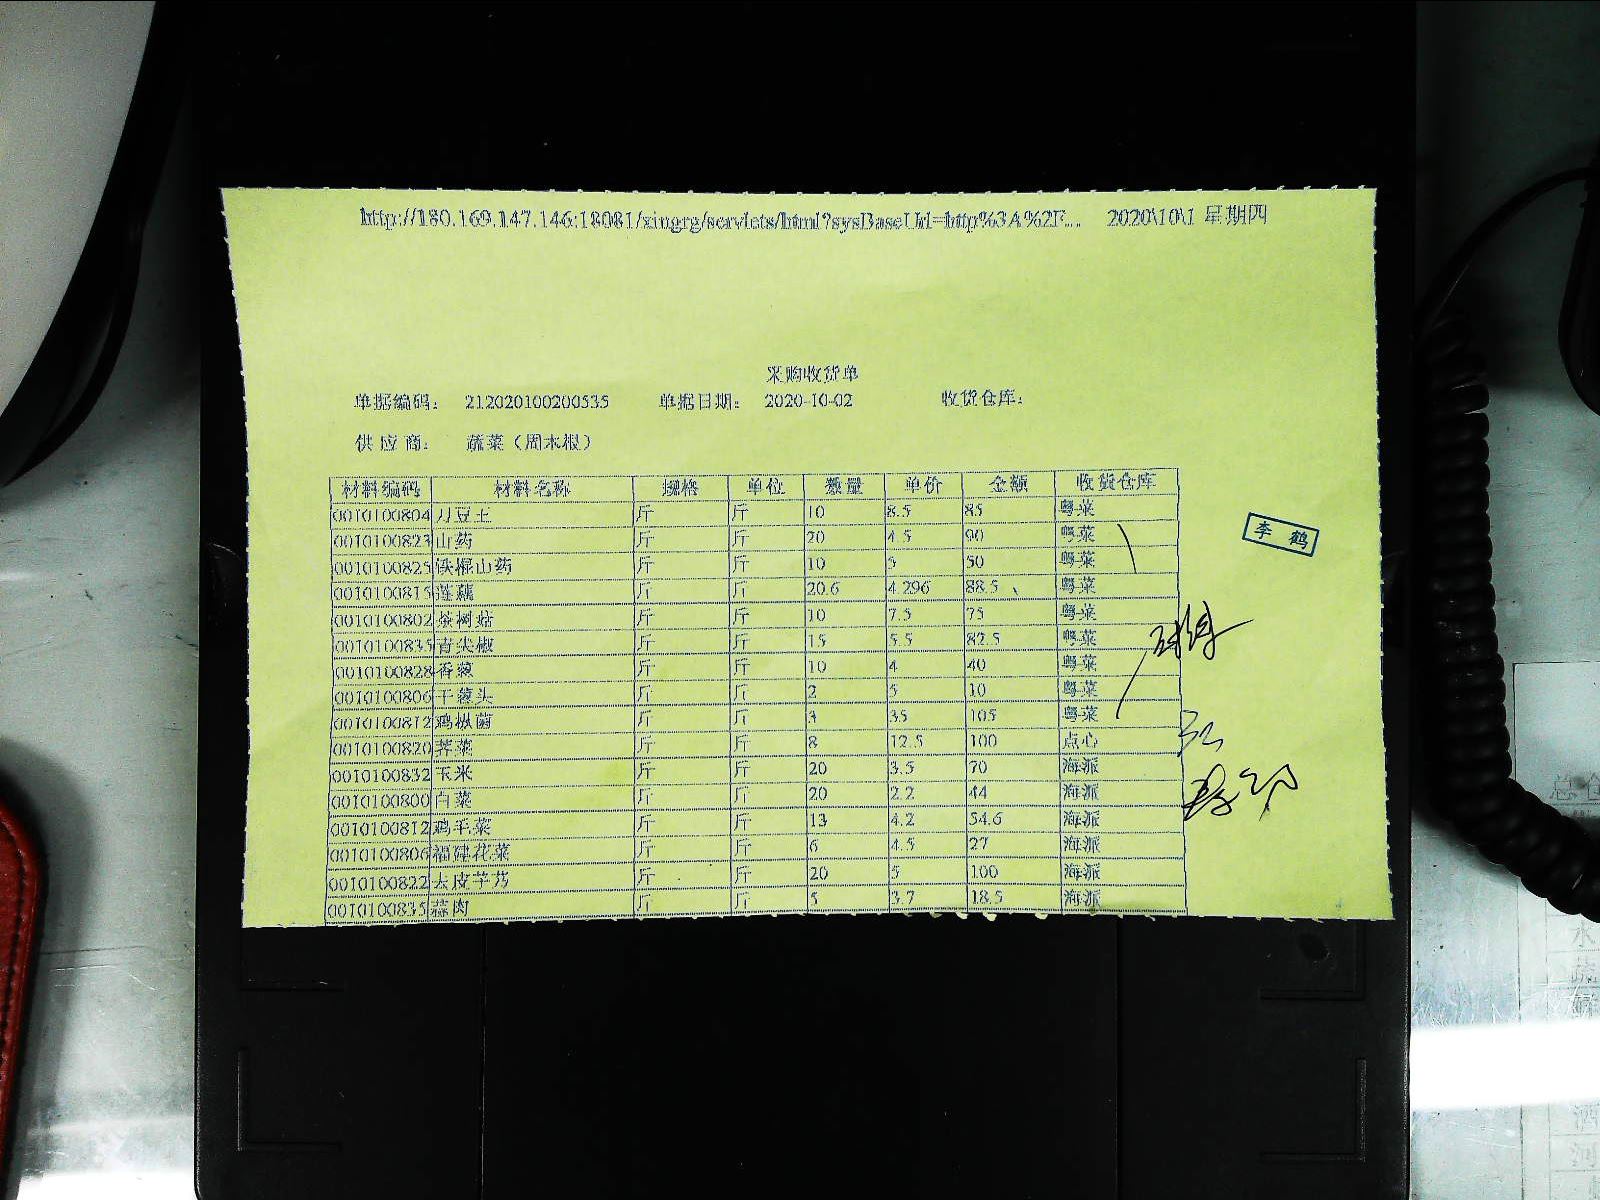 http://180.169.147.146:18081/xingrg/servlets/html?sysBaseUrl=http%3A%2F... 2020\10\1 星期四
采购收货单
单据编码： 212020100200535 单据日期： 2020-10-02 收货仓库：
供 应 商： 蔬菜（周木根）
材料编码 材料名称 规格 单位 数量 单价 金额 收货仓库
0010100804 刀豆王 斤 斤 10 8.5 85 粤菜
0010100823 山药 斤 斤 20 4.5 90 粤菜
0010100825 铁棍山药 斤 斤 10 5 50 粤菜
0010100815 莲藕 斤 斤 20.6 4.296 88.5 粤菜
0010100802 茶树菇 斤 斤 10 7.5 75 粤菜
0010100835 青尖椒 斤 斤 15 5.5 82.5 粤菜
0010100828 香葱 斤 斤 10 4 40 粤菜
0010100806 干葱头 斤 斤 2 5 10 粤菜
0010100812 鸡枞菌 斤 斤 3 35 105 粤菜
0010100820 荠菜 斤 斤 8 12.5 100 点心
0010100832 玉米 斤 斤 20 3.5 70 海派
0010100800 白菜 斤 斤 20 2.2 44 海派
0010100812 鸡毛菜 斤 斤 13 4.2 54.6 海派
0010100806 福建花菜 斤 斤 6 4.5 27 海派
0010100822 去皮芋艿 斤 斤 20 5 100 海派
0010100835 蒜肉 斤 斤 5 3.7 18.5 海派
李鹤